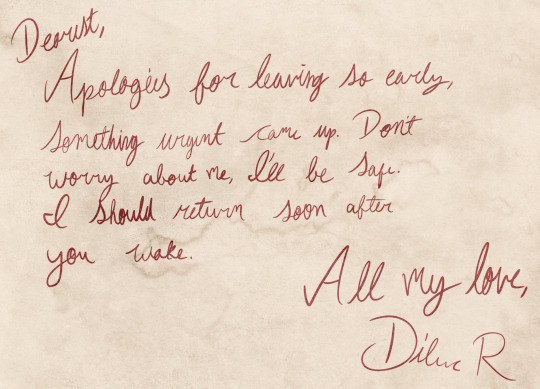 Dearest,
Apologies for leaving so early,
something urgent came up. Don't
worry about me, I'll be safe.
I should return soon after
you wake.
All my love,
Diluc R